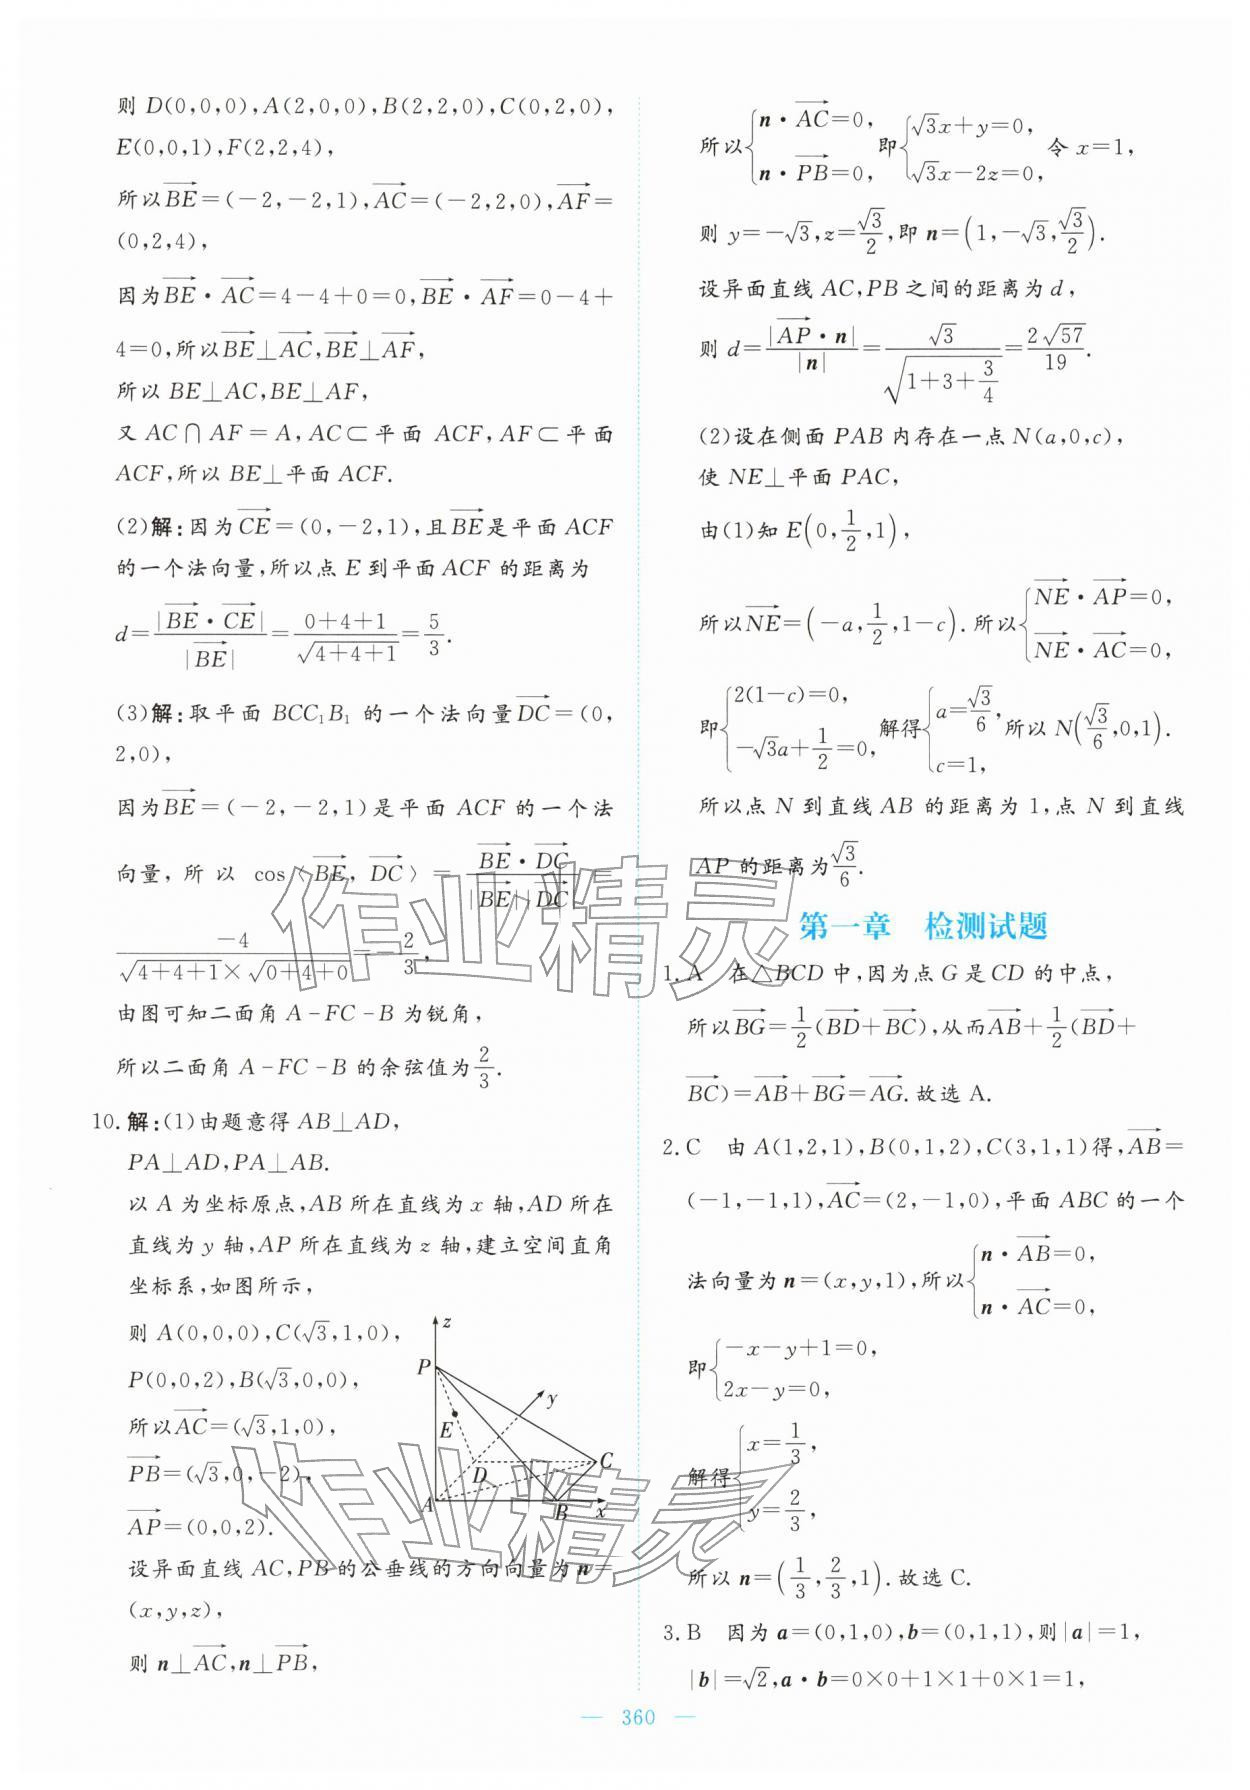 则 D(0,0,0),A(2,0,0),B(2,2,0),C(0,2,0),
E(0,0,1),F(2,2,4),
所以$\overrightarrow{BE}$=(-2,-2,1),$\overrightarrow{AC}$=(-2,2,0),$\overrightarrow{AF}$=
(0,2,4),
因为$\overrightarrow{BE}$·$\overrightarrow{AC}$=4-4+0=0,$\overrightarrow{BE}$·$\overrightarrow{AF}$=0-4+
4=0,所以$\overrightarrow{BE}$⊥$\overrightarrow{AC}$,$\overrightarrow{BE}$⊥$\overrightarrow{AF}$,
所以 BE⊥AC,BE⊥AF,
又 AC∩AF=A,AC⊂平面 ACF,AF⊂平面
ACF,所以 BE⊥平面 ACF.
(2)解:因为$\overrightarrow{CE}$=(0,-2,1),且$\overrightarrow{BE}$是平面 ACF
的一个法向量,所以点 E 到平面 ACF 的距离为
$d=\frac{|\overrightarrow{BE}·\overrightarrow{CE}|}{|\overrightarrow{BE}|}=\frac{0+4+1}{\sqrt{4+4+1}}=\frac{5}{3}$.
(3)解:取平面 BCC₁B₁ 的一个法向量$\overrightarrow{DC}$=(0,
2,0),
因为$\overrightarrow{BE}$=(-2,-2,1)是平面 ACF 的一个法
向量,所以 cos〈$\overrightarrow{BE}$,$\overrightarrow{DC}$〉=$\frac{\overrightarrow{BE}·\overrightarrow{DC}}{|\overrightarrow{BE}||\overrightarrow{DC}|}$=
$\frac{-4}{\sqrt{4+4+1}×\sqrt{0+4+0}}=-\frac{2}{3}$,
由图可知二面角 A-FC-B 为锐角,
所以二面角 A-FC-B 的余弦值为$\frac{2}{3}$.
10.解:(1)由题意得 AB⊥AD,
PA⊥AD,PA⊥AB.
以 A 为坐标原点,AB 所在直线为 x 轴,AD 所在
直线为 y 轴,AP 所在直线为 z 轴,建立空间直角
坐标系,如图所示,
则 A(0,0,0),C(√3,1,0),
P(0,0,2),B(√3,0,0),
所以$\overrightarrow{AC}$=(√3,1,0),
$\overrightarrow{PB}$=(√3,0,-2),
$\overrightarrow{AP}$=(0,0,2).
z
P
y
E
D
C
A
B
x
设异面直线 AC,PB 的公垂线的方向向量为 n=
(x,y,z),
则 n⊥$\overrightarrow{AC}$,n⊥$\overrightarrow{PB}$,
所以$\begin{cases}n·\overrightarrow{AC}=0,\\n·\overrightarrow{PB}=0,\end{cases}$即$\begin{cases}\sqrt{3}x+y=0,\\\sqrt{3}x-2z=0,\end{cases}$令 x=1,
则 y=-√3,z=$\frac{\sqrt{3}}{2}$,即 n=$\left(1,-\sqrt{3},\frac{\sqrt{3}}{2}\right)$.
设异面直线 AC,PB 之间的距离为 d,
则 $d=\frac{|\overrightarrow{AP}·n|}{|n|}=\frac{\sqrt{3}}{\sqrt{1+3+\frac{3}{4}}}=\frac{2\sqrt{57}}{19}$.
(2)设在侧面 PAB 内存在一点 N(a,0,c),
使 NE⊥平面 PAC,
由(1)知 E$\left(0,\frac{1}{2},1\right)$,
所以$\overrightarrow{NE}$=$\left(-a,\frac{1}{2},1-c\right)$.所以$\begin{cases}\overrightarrow{NE}·\overrightarrow{AP}=0,\\\overrightarrow{NE}·\overrightarrow{AC}=0,\end{cases}$
即$\begin{cases}2(1-c)=0,\\-\sqrt{3}a+\frac{1}{2}=0,\end{cases}$解得$\begin{cases}a=\frac{\sqrt{3}}{6},\\c=1,\end{cases}$所以 N$\left(\frac{\sqrt{3}}{6},0,1\right)$.
所以点 N 到直线 AB 的距离为 1,点 N 到直线
AP 的距离为$\frac{\sqrt{3}}{6}$.
第一章 检测试题
1.A 在△BCD 中,因为点 G 是 CD 的中点,
所以$\overrightarrow{BG}=\frac{1}{2}(\overrightarrow{BD}+\overrightarrow{BC})$,从而$\overrightarrow{AB}+\frac{1}{2}(\overrightarrow{BD}+$
$\overrightarrow{BC})=\overrightarrow{AB}+\overrightarrow{BG}=\overrightarrow{AG}$.故选 A.
2.C 由 A(1,2,1),B(0,1,2),C(3,1,1)得,$\overrightarrow{AB}$=
(-1,-1,1),$\overrightarrow{AC}$=(2,-1,0),平面 ABC 的一个
法向量为 n=(x,y,1),所以$\begin{cases}n·\overrightarrow{AB}=0,\\n·\overrightarrow{AC}=0,\end{cases}$
即$\begin{cases}-x-y+1=0,\\2x-y=0,\end{cases}$
解得$\begin{cases}x=\frac{1}{3},\\y=\frac{2}{3},\end{cases}$
所以 n=$\left(\frac{1}{3},\frac{2}{3},1\right)$.故选 C.
3.B 因为 a=(0,1,0),b=(0,1,1),则|a|=1,
|b|=√2,a·b=0×0+1×1+0×1=1,
作业精灵
作业精灵
— 360 —